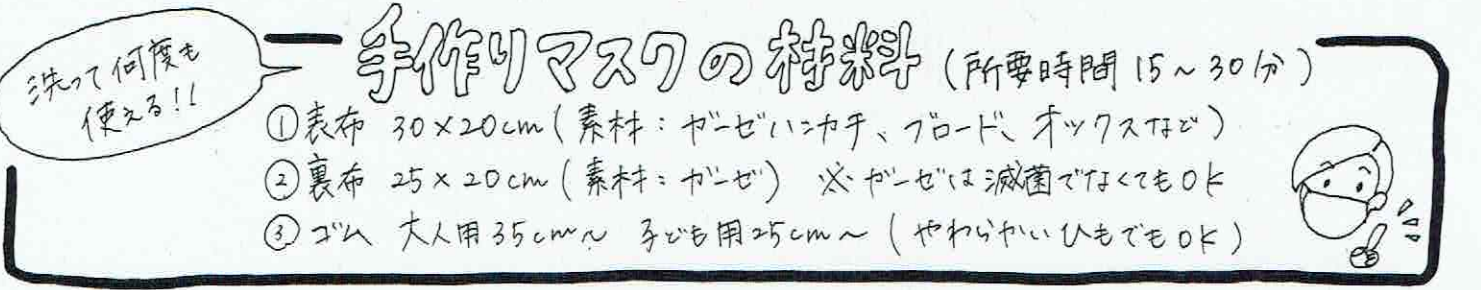 洗って何度も
使える!!
手作りマスクの材料(所要時間15~30分)
①表布 30×20cm(素材:ガーゼハンカチ、ブロード、オックスなど)
②裏布 25×20cm(素材:ガーゼ) ※ガーゼは滅菌でなくてもOK
③ゴム 大人用35cm~ 子ども用25cm~(やわらかいひもでもOK)